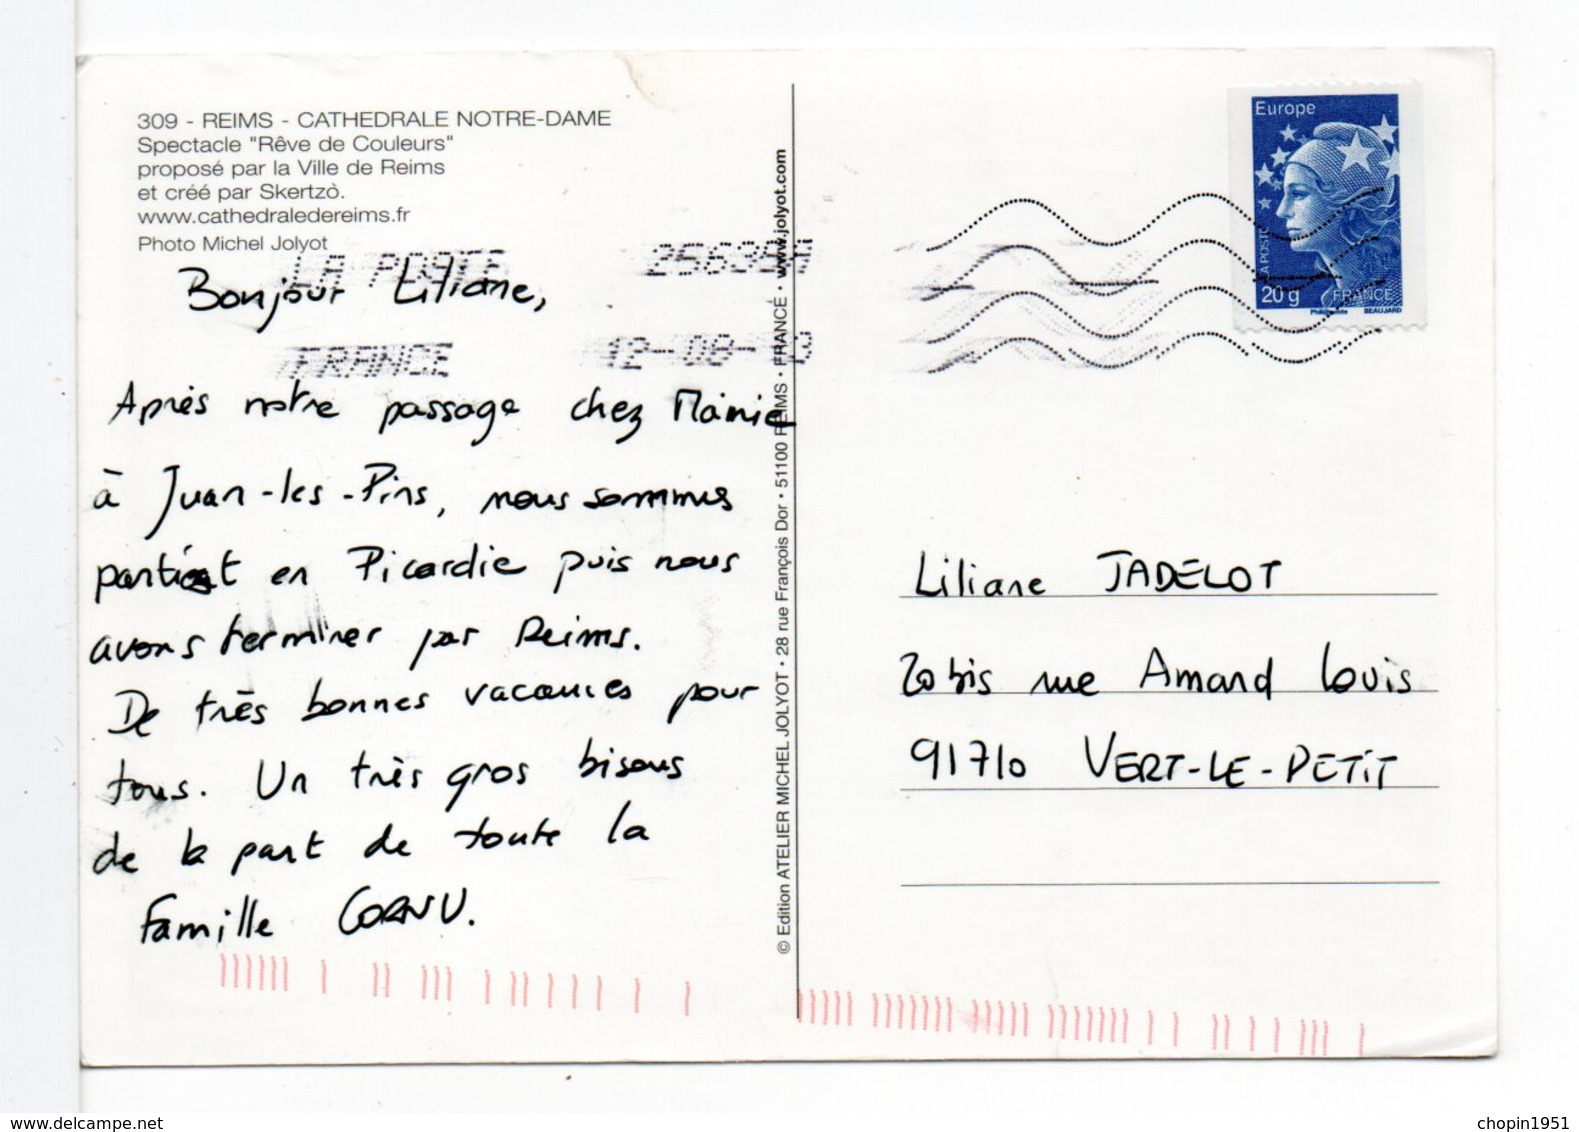 309 - REIMS - CATHEDRALE NOTRE-DAME
Spectacle "Rêve de Couleurs"
proposé par la Ville de Reims
et créé par Skertzò.
www.cathedraledereims.fr
Photo Michel Jolyot
LA POSTE 25638A
FRANCE 12-08-
Bonjour Liliane,
Après notre passage chez Mamie
à Juan-les-Pins, nous sommes
en Picardie puis nous
avons terminer par Reims.
De très bonnes vacances pour
tous. Un très gros bisous
de la part de toute la
Famille CORNU.
© Edition ATELIER MICHEL JOLYOT • 28 rue François Dor • 51100 REIMS • FRANCE • www.jolyot.com
Europe
LA POSTE
20 g FRANCE
BEAUJARD
Liliane JADELOT
20 bis rue Amand Louis
91710 VERT-LE-PETIT
www.delcampe.net
chopin1951